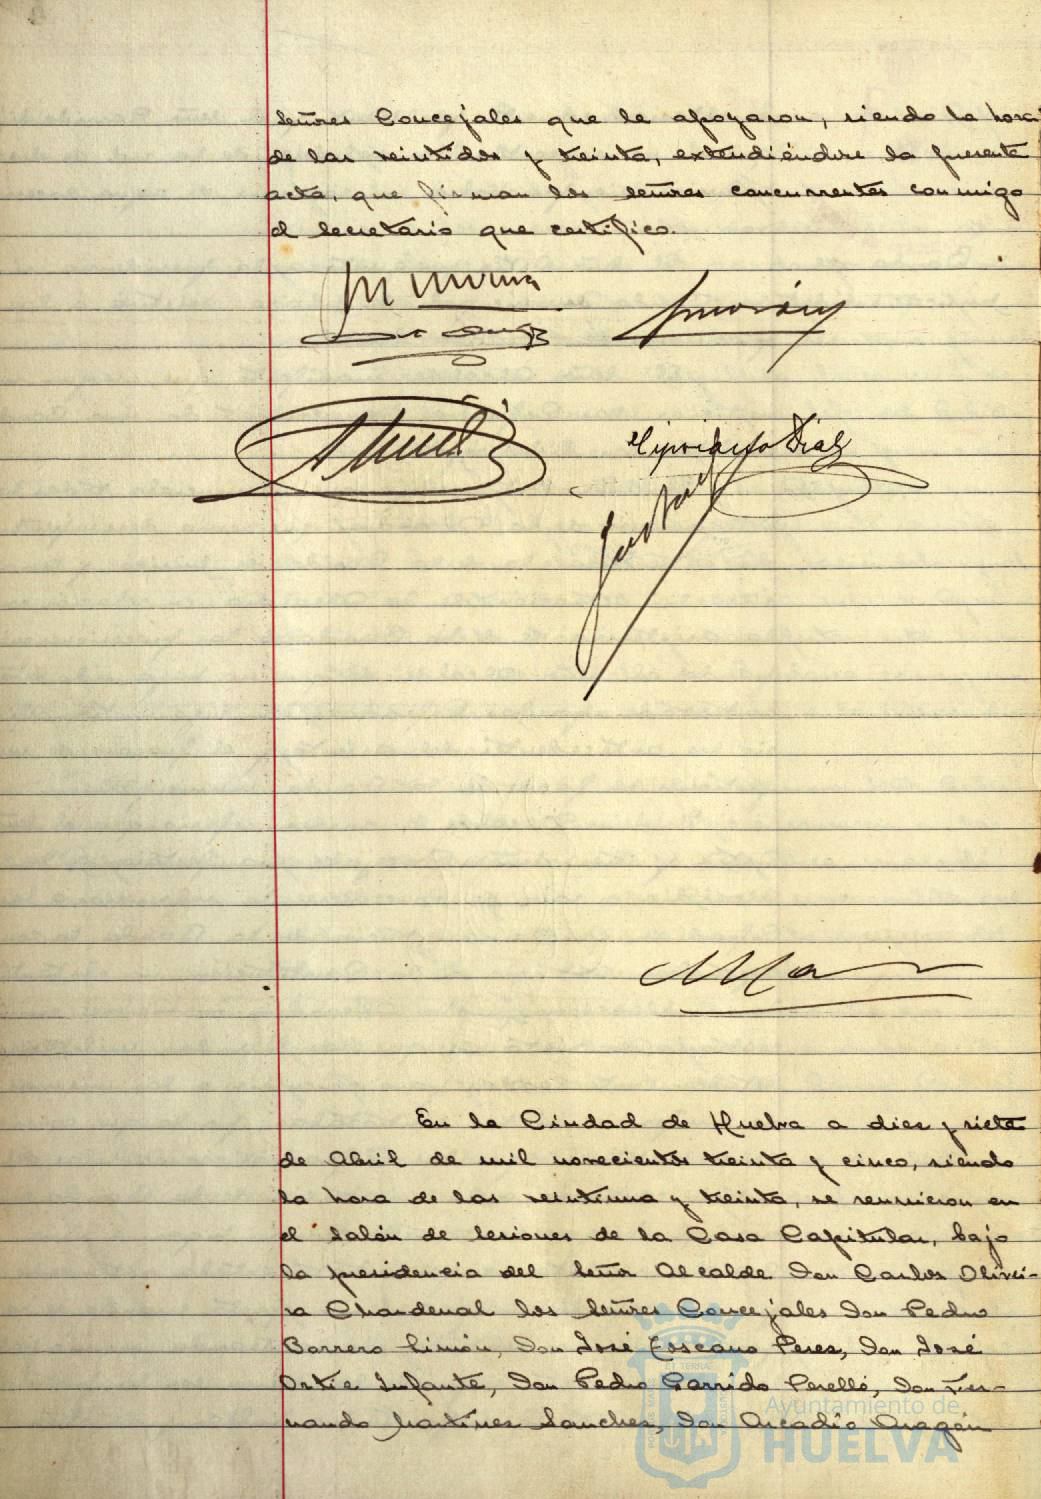 señores Concejales que le apoyaron, siendo la hora
de las veintidos y treinta, extendiéndose la presente
acta, que firman los señores concurrentes conmigo
el Secretario que certifico.
Cipriano Diaz
En la Ciudad de Huelva a diez y siete
de Abril de mil novecientos treinta y cinco, siendo
la hora de las veintiuna y treinta, se reunieron en
el Salón de Sesiones de la Casa Capitular, bajo
la presidencia del Señor Alcalde Don Carlos Olivei-
ra Chardenal los Señores Concejales Don Pedro
Borrero Limón, Don José Toscano Perez, Don José
Ortiz Infante, Don Pedro Garrido Perelló, Don Fer-
nando Martinez Sanchez, Don Arcadio Aragón
Ayuntamiento de
HUELVA